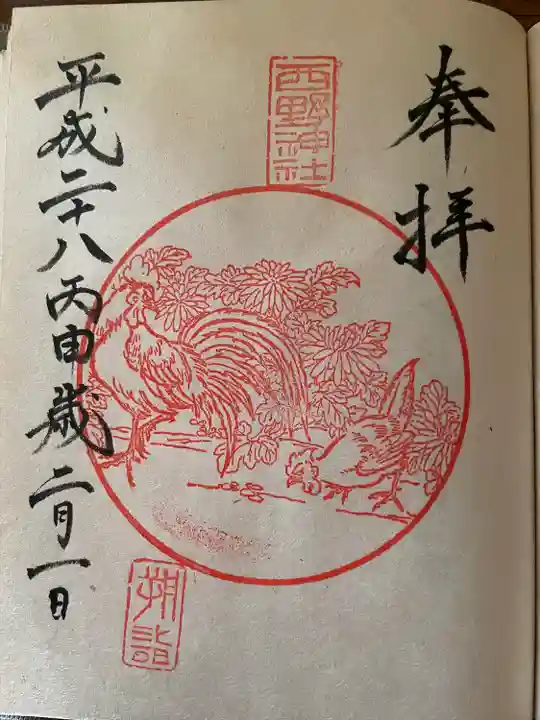 奉拝
西野神社
平成二十八丙申歳二月一日
朔詣